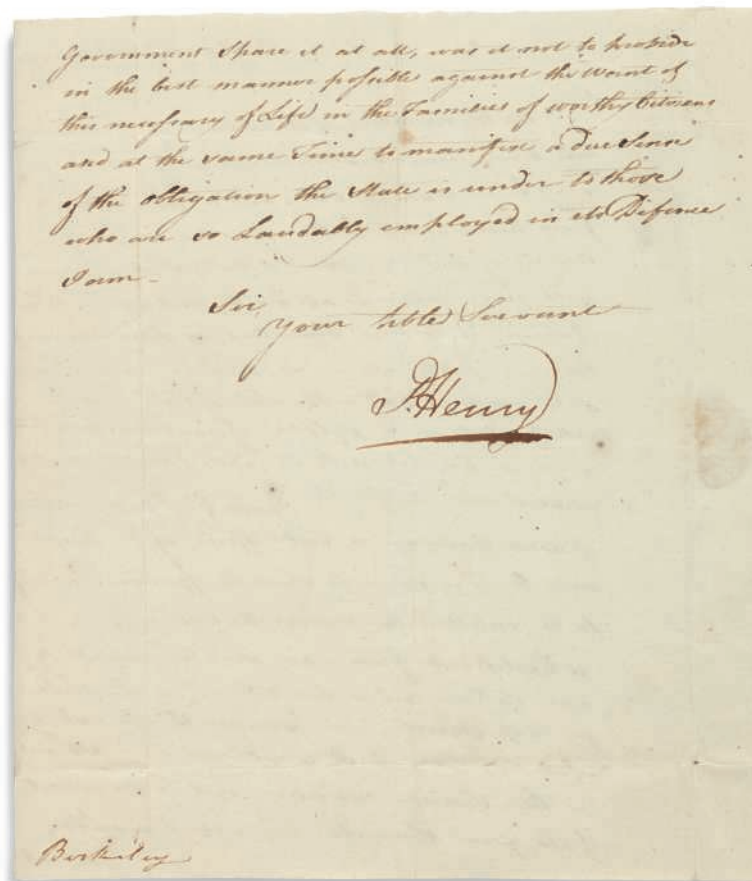 Government spare it at all, was it not to provide
in the best manner possible against the Want of
this necessary of Life in the Families of worthy Citizens
and at the same Time to manifest a due Sense
of the obligation the State is under to those
who are so Laudably employed in its Defence
I am -
Sir,
your hble Servant
P. Henry
Berkeley